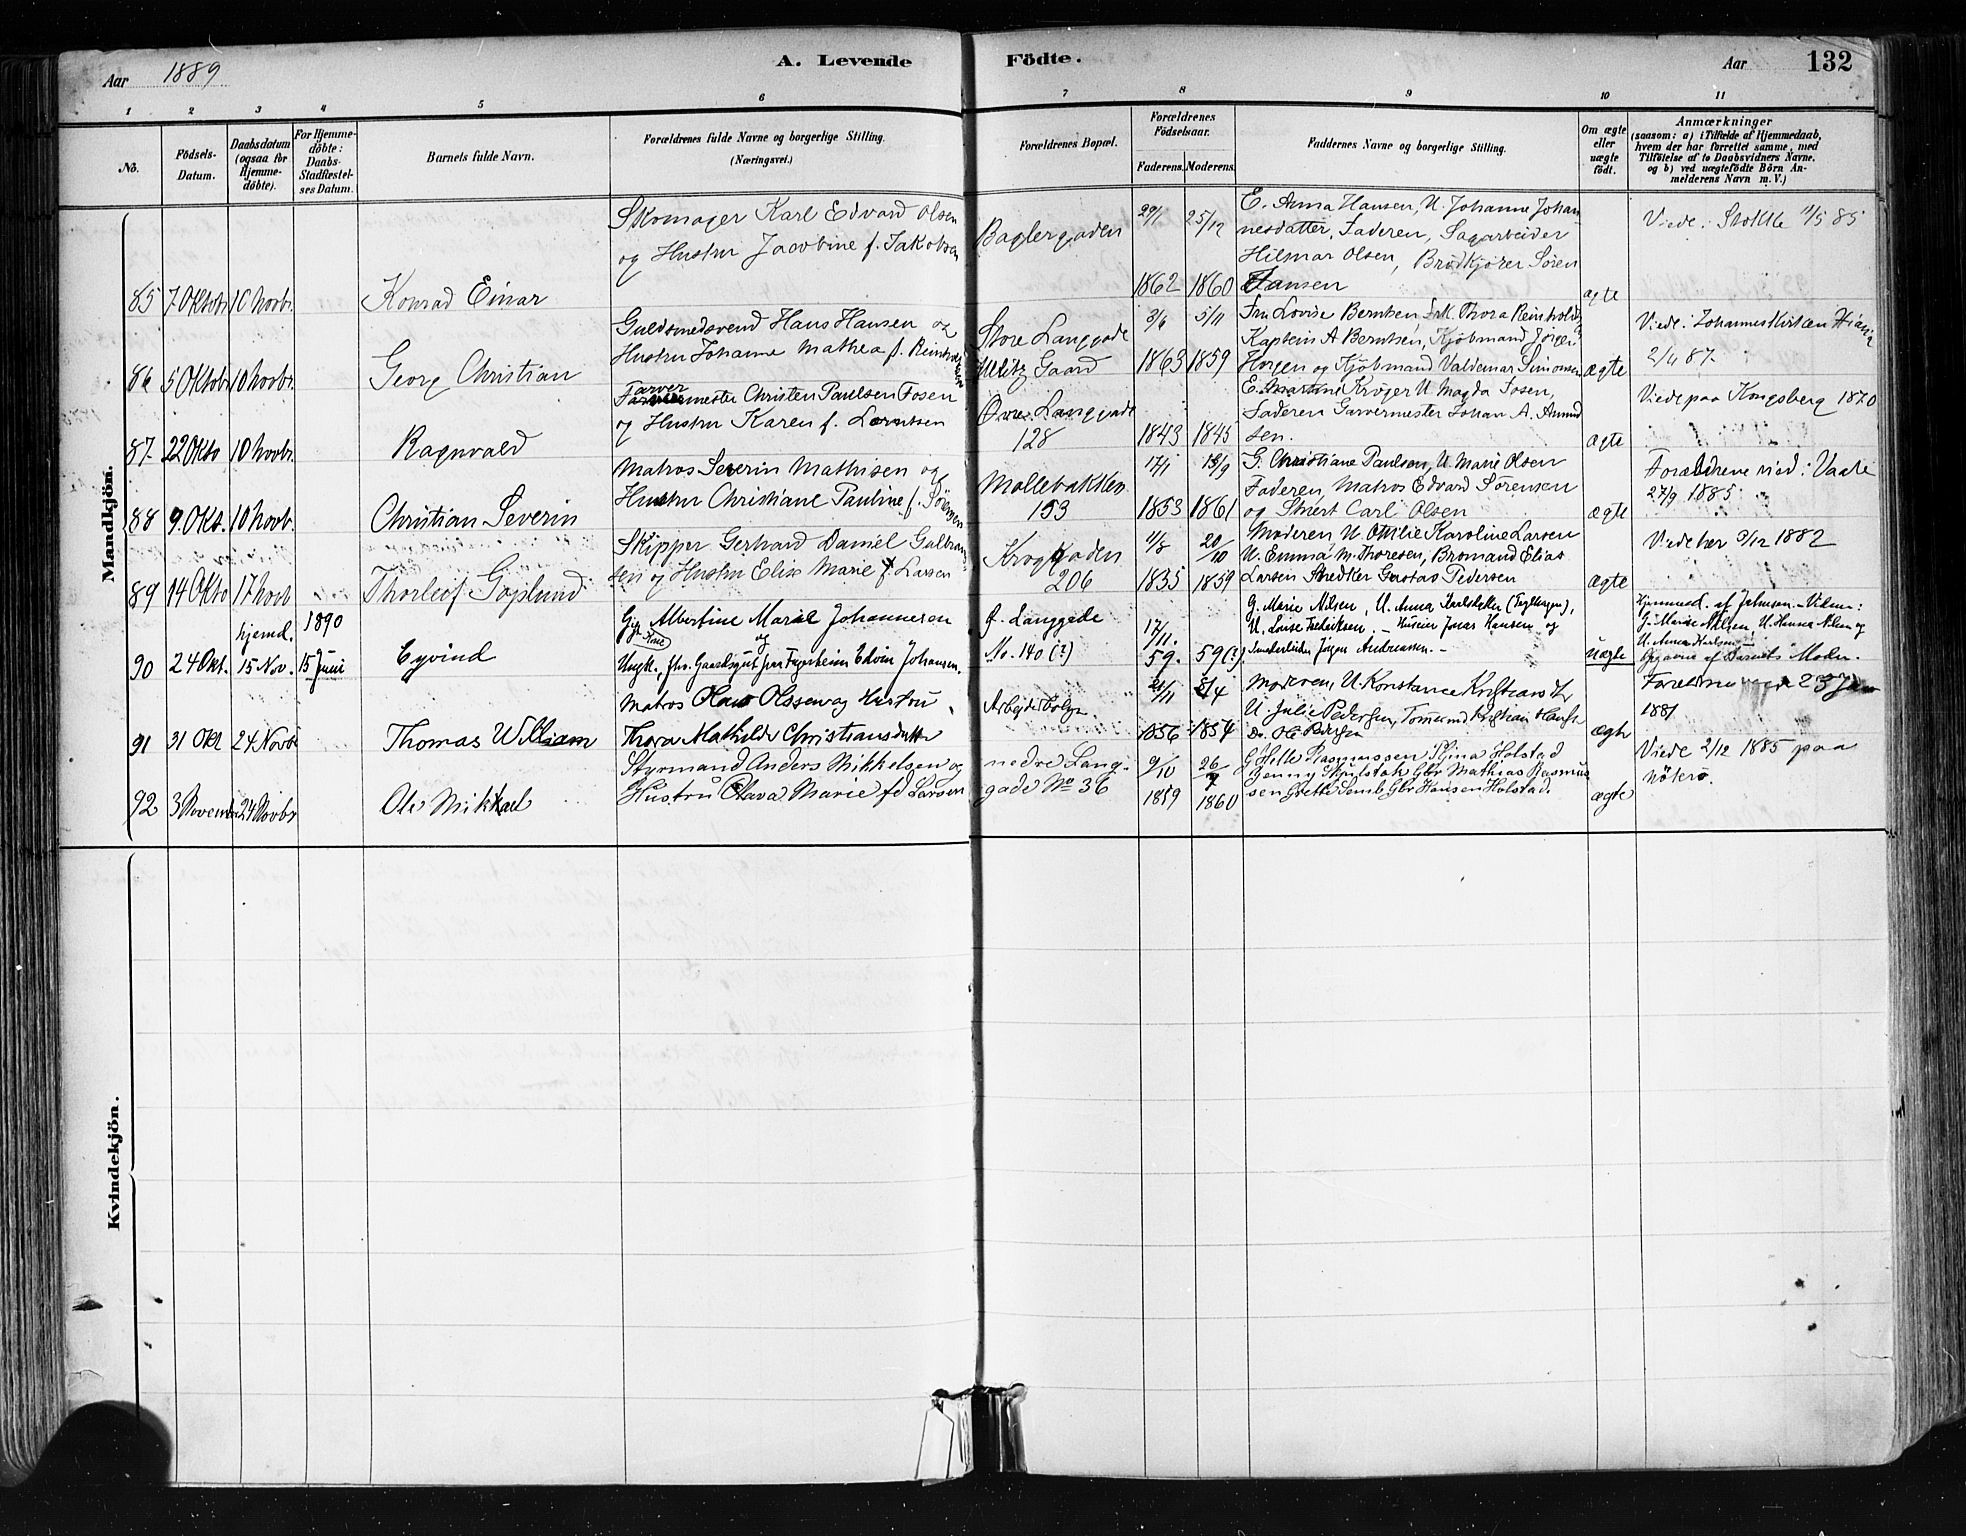 Aar 1889
A. Levende Födte.
Aar 132
1 2 3 4 5 6 7 8 9 10 11
No.
Födsels-Datum.
Daabsdatum (ogsaa for Hjemme-döbte).
For Hjemme-döbte: Daabs-Stadfæstel-ses Datum.
Barnets fulde Navn.
Forældrenes fulde Navne og borgerlige Stilling. (Næringsvei.)
Forældrenes Bopæl.
Forældrenes Födselsaar.
Faderens. Moderens.
Faddernes Navne og borgerlige Stilling.
Om ægte eller uægte födt.
Anmærkninger
(saasom: a) i Tilfælde af Hjemmedaab,
hvem der har forrettet samme, med
Tilföielse af to Daabsvidners Navne,
og b) ved uægtefödte Börn An-
melderens Navn m. V.)
Mandkjön.
85 7 Oktobr 10 Novbr. Konrad Einar
Skomager Karl Edvard Olsen
og Hustru Jacobine f. Jakobsen
Baglergaden
29/1 1862 25/12 1860
E. Anna Hansen, U. Johanne Johan
nesdatter, Faderen, Sagarbeider
Hilmar Olsen, Brödkjörer Sören
Hansen
ægte
Viede i Stokke 11/5 85
86 5 Oktobr 10 Novbr. Georg Christian
Guldsmedsvend Hans Hansen og
Hustru Johanne Mathea f.
Store Langgade
Gaard
3/6 1863 5/11 1859
Fru Lovise Berntsen Frk. Thora
Kaptein A Berntsen, Kjöbmand Jörgen
Horgen og Kjöbmand Valdemar Simonsen
ægte
Viede i
2/4 87.
87 22 Okto 10 Novbr. Ragnvald
Farver
mester Christen Paulsen Fosen
og Hustru Karen f. Lorentsen
Övre Langgade
128
1843 1845
E. Martine Kröger U. Magda Fosen,
Faderen Garvermester Johan A. Amund
sen.
ægte
Viede paa Kongsberg 1870
88 9. Okt. 10 Novb. Christian Severin
Matros Severin Mathisen og
Hustru Christiane Pauline f. Sörensen
Møllebakken
153
17/1 1853 13/9 1861
G. Christiane Paulsen, U. Marie Olsen
Faderen, Matros Edvard Sörensen
og Carl Olsen
ægte
Forældrene vied i Vaale
27/9 1885
89 14 Okto 17 Novb Thorleif
Skipper Gerhard Daniel Gulbran
sen og Hustru Elise Marie f. Larsen
Kroggaden
206
11/8 1835 20/10 1859
Moderen U Ottilie Karoline Larsen
U. Emma M. Thoresen, Elias
Larsen Gustav Pedersen
ægte
Viede her 3/12 1882
90 24 Okt. hjemd. 15 Nov. 1890 15 Juni Eyvind
Albertine Marie Johannesen
og
Ungk. Edvin Johansen.
Ø. Langgade
No. 140 (?)
17/11. 59. 59 (?)
G. Marie Nilsen, U. Anna
U. Lovise Fredriksen, Jonas Hansen og
Jörgen Andreassen.
uægte
Hjemmed. af
G. Marie Nilsen U. Hanna Nilsen og
U. Anna
Opgavne af Barnets Moder.
91 31 Okt 24 Novbr Thomas William
Matros Olaus Olssen og Hustru
Thora Mathilde Christiansdatter
Arbeiderbolig
21/11 1856 8/4 1854
Moderen, U. Konstance
U. Julie Pedersen,
ægte
1881
92 3 Novembr 24 Novbr Ole Mikkael
Styrmand Anders Mikkelsen og
Hustru Olava Marie fd Larsen
nedre Lang-
gade No 36
9/10 1859 26/7 1860
Helle Rasmussen Holstad
Jenny Mathias Rasmus
sen Grette Hansen Holstad
ægte
Viede 2/12 1885 paa
Nöterö.
Kvindekjön.